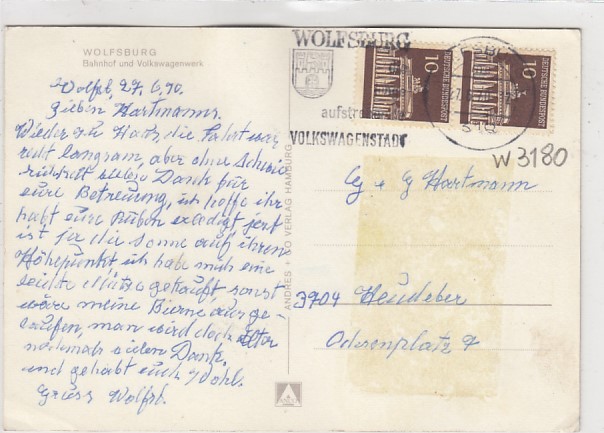 WOLFSBURG
Bahnhof und Volkswagenwerk
Wolfsb. 27.6.70.
Lieben Hartmanns.
Wieder zu Haus, die Fahrt war
recht langsam, aber ohne Schwie
vielen Dank für
eure Betreuung, ich hoffe ihr
habt eure Rüben jetzt
ist ja die Sonne auf ihren
Höhepunkt, ich hab mich eine
leichte Mütze gekauft sonst
wäre meine Birne ausge-
laufen, man wird doch älter
nochmals vielen Dank.
und gehabt euch Wohl.
Gruss Wolfsb.
ANDRES + CO VERLAG HAMBURG
WOLFSBURG
aufstrebende
VOLKSWAGENSTADT
10
DEUTSCHE BUNDESPOST
10
DEUTSCHE BUNDESPOST
W 3180
Hartmann
3704 Heudeber
Ochsenplatz 7